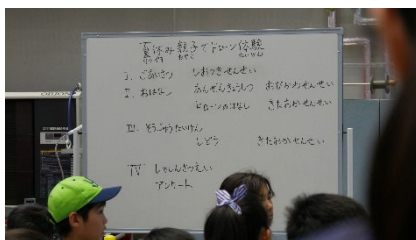 夏休み親子でドローン体験
なつやす おやこ たいけん
I. ごあいさつ しおつきせんせい
II. おはなし あんぜんきょうしつ おびかわせんせい
ドローンのはなし きたおかせんせい
III. そうじゅうたいけん
しどう きたおかせんせい
IV しゃしんさつえい
アンケート